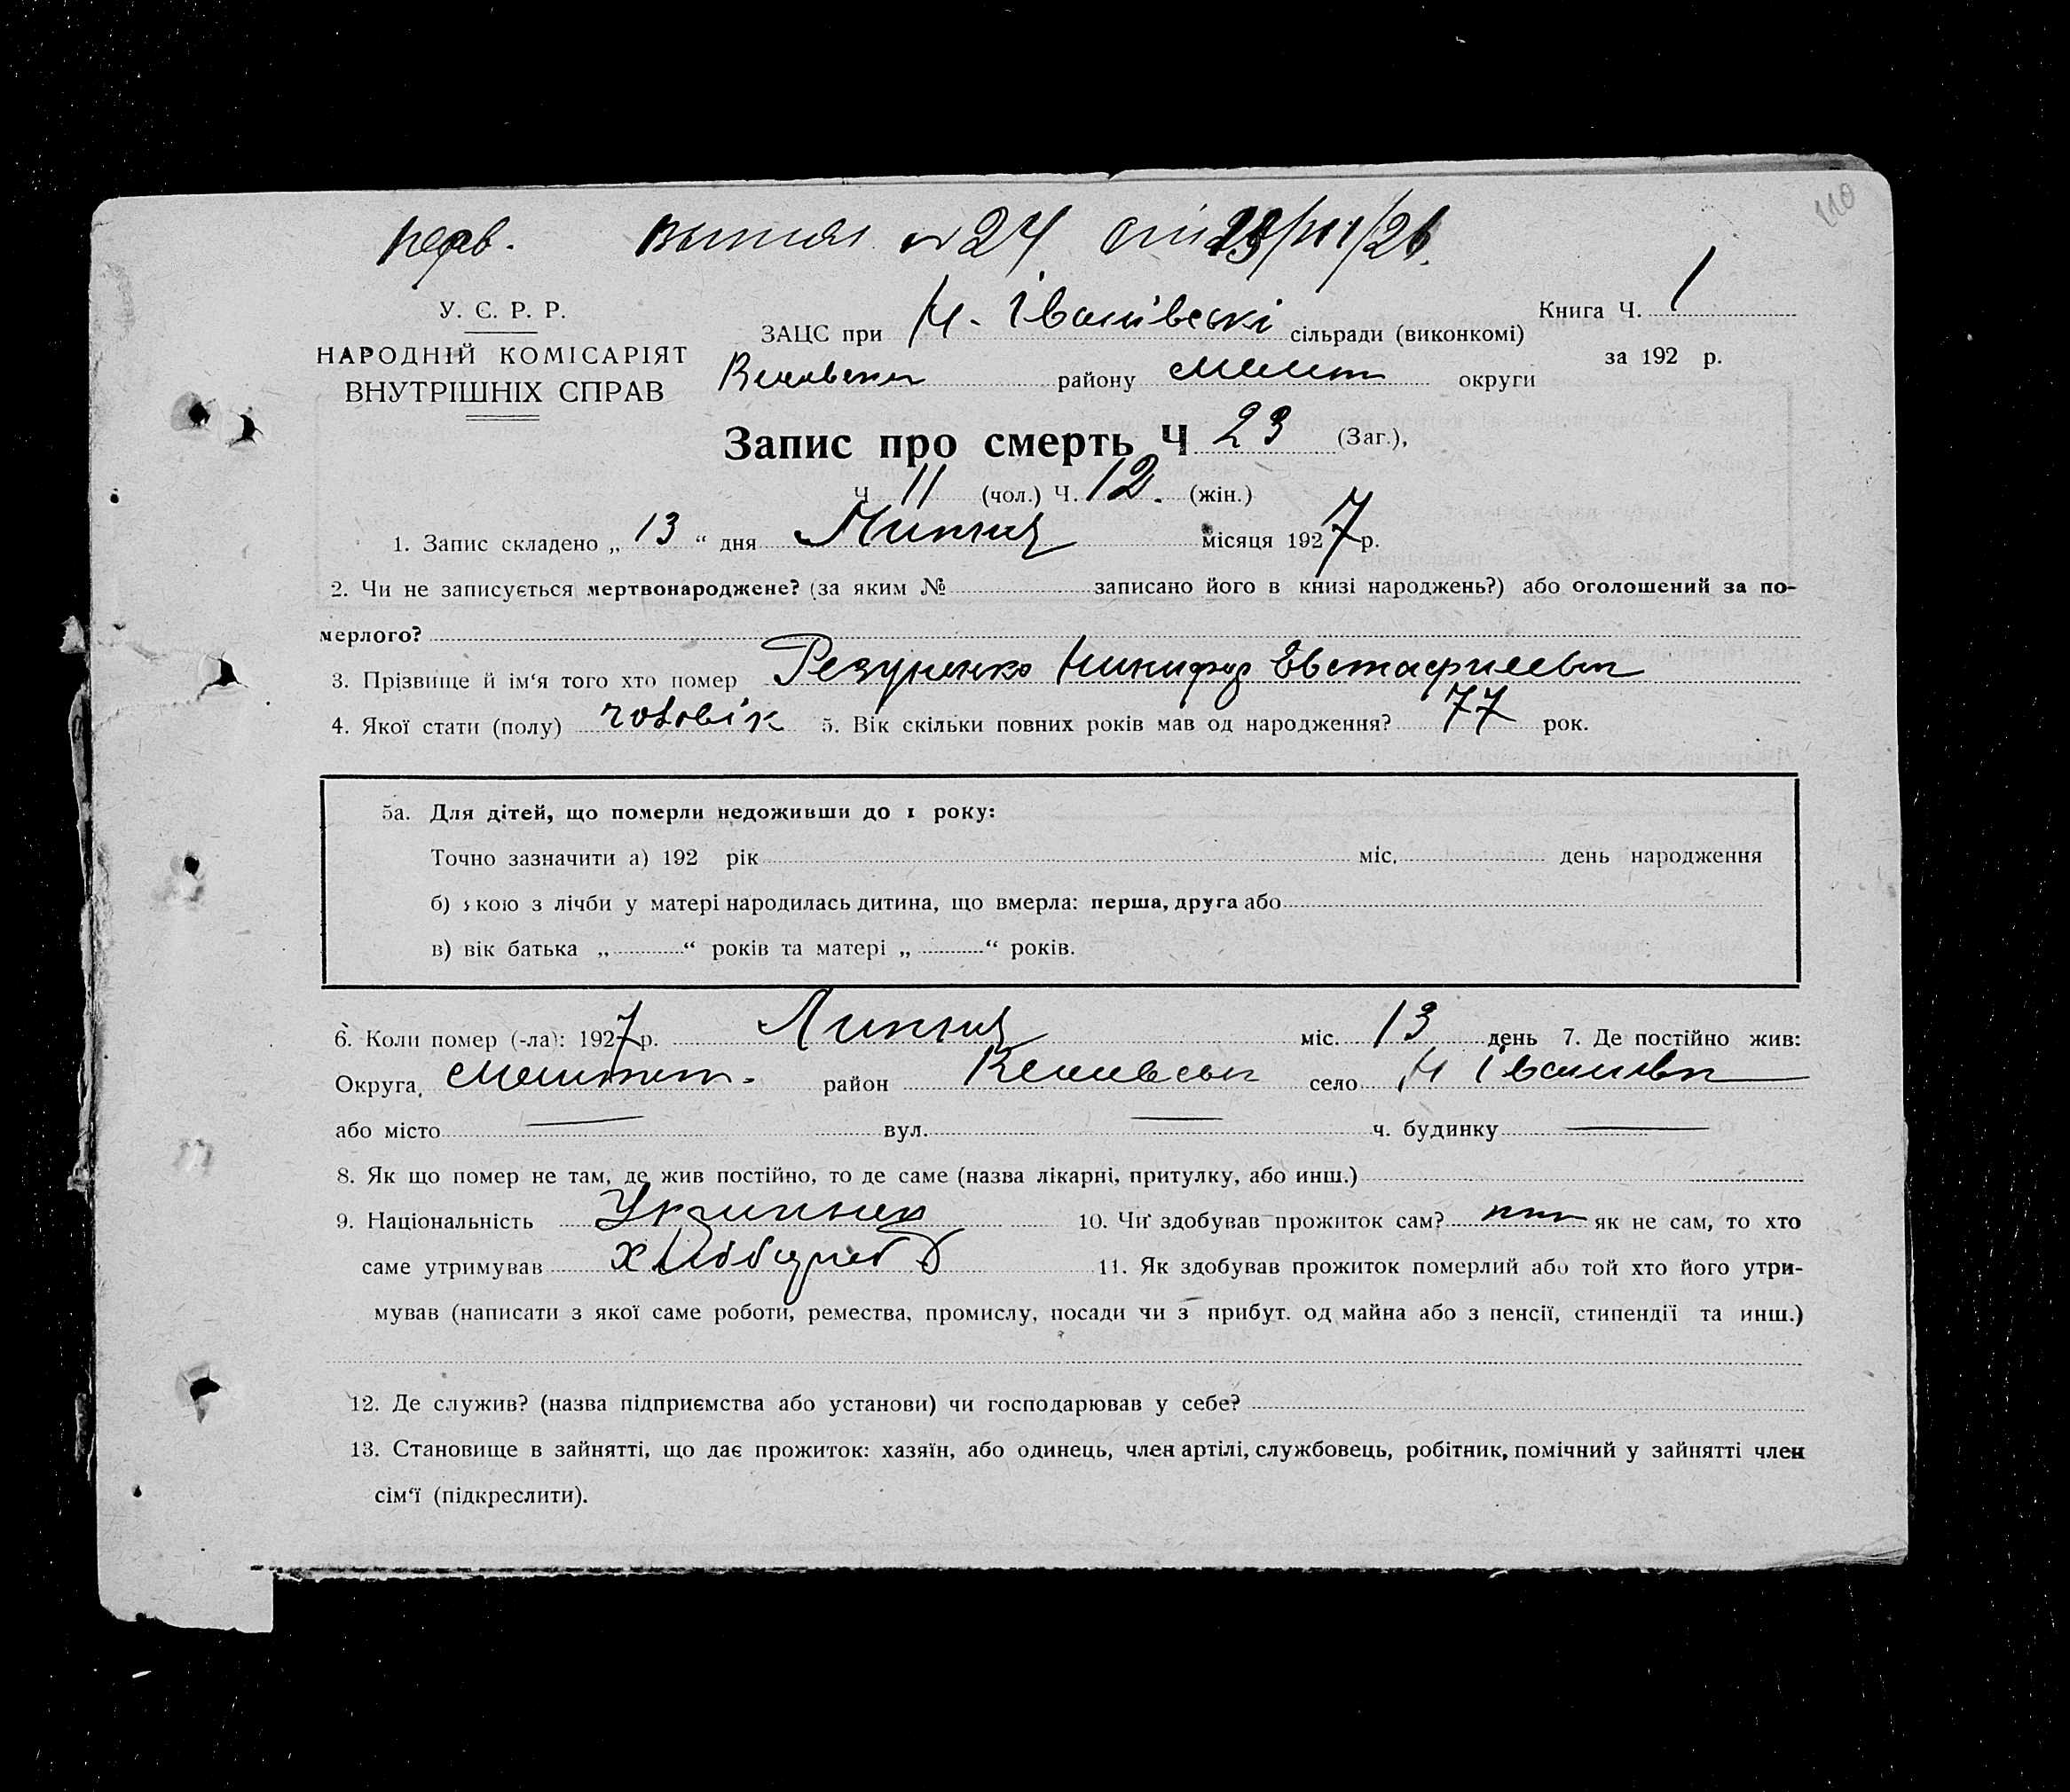 110
перв. выписи № 24 от 28/VIII/26.
У. С. Р. Р.
НАРОДНІЙ КОМІСАРІЯТ
ВНУТРІШНІХ СПРАВ
ЗАЦС при Н. Іванівські сільради (виконкомі)
району Меліт округи
Книга Ч. 1
за 192 р.
Запис про смерть Ч 23 (Заг.),
Ч 11 (чол.) Ч. 12. (жін.)
1. Запис складено „ 13 “ дня Липня місяця 1927 р.
2. Чи не записується мертвонароджене? (за яким № записано його в книзі народжень?) або оголошений за по-
мерлого?
3. Прізвище й ім‘я того хто помер Резуненко Никифор Евстафиевич
4. Якої стати (полу) чоловік 5. Вік скільки повних років мав од народження? 77 рок.
5а. Для дітей, що померли недоживши до 1 року:
Точно зазначити а) 192 рік міс. день народження
б) якою з лічби у матері народилась дитина, що вмерла: перша, друга або
в) вік батька „ “ років та матері „ “ років.
6. Коли помер (-ла): 1927 р. Липня міс. 13 день 7. Де постійно жив:
Округа Мелітоп. район село Н Іванівка
або місто — вул. — ч. будинку —
8. Як що помер не там, де жив постійно, то де саме (назва лікарні, притулку, або инш.)
9. Національність Українец 10. Чи здобував прожиток сам? як не сам, то хто
саме утримував хлібороб 11. Як здобував прожиток померлий або той хто його утри-
мував (написати з якої саме роботи, ремества, промислу, посади чи з прибут. од майна або з пенсії, стипендії та инш.)
12. Де служив? (назва підприємства або установи) чи господарював у себе?
13. Становище в зайнятті, що дає прожиток: хазяїн, або одинець, член артілі, службовець, робітник, помічний у зайнятті член
сім‘ї (підкреслити).